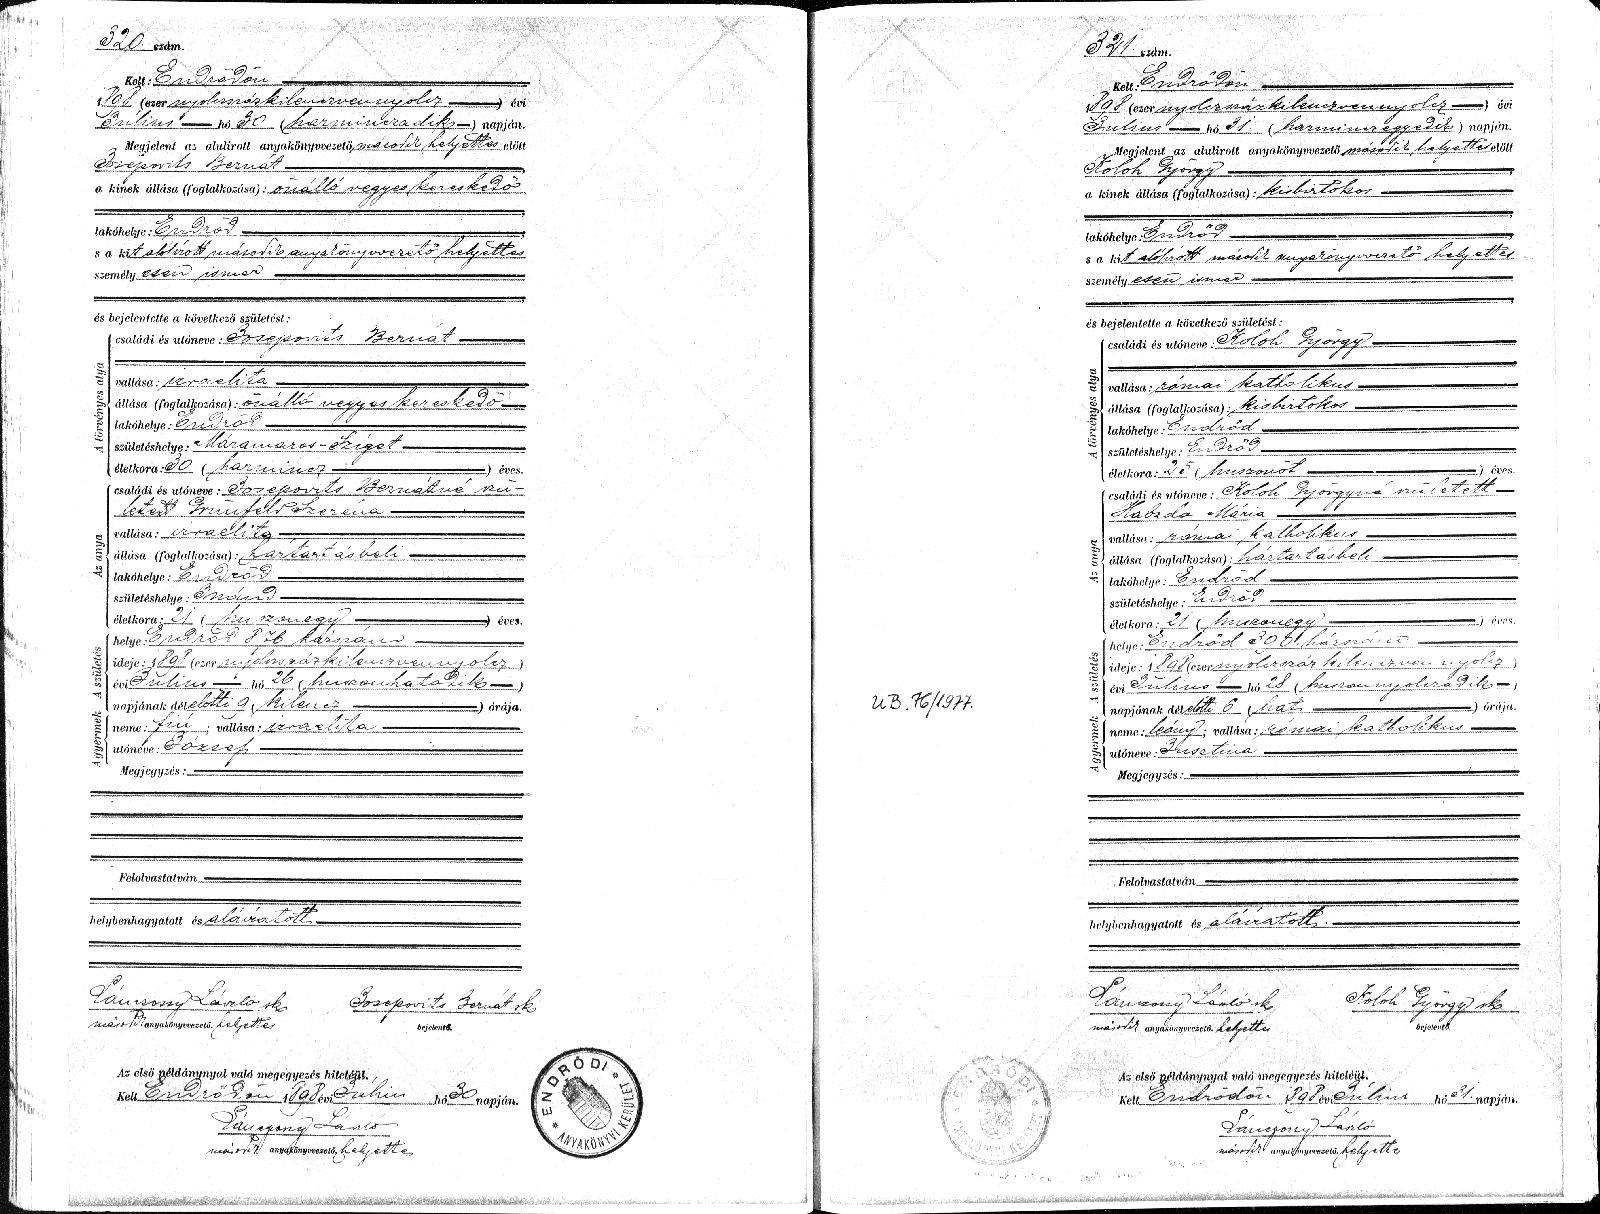 320. szám.
Kelt: Endrődön
1898 (ezer nyolcszázkilenczvennyolcz) évi
Július hó 30 (harminczadik) napján.
Megjelent az alulirott anyakönyvvezető, második helyettes előtt
Josepovits Bernát
a kinek állása (foglalkozása): önálló vegyes kereskedő
lakóhelye: Endrőd
s a kit alólirott második anyakönyvvezető helyettes
személyesen ismer
és bejelentette a következő születést:
A törvényes atya
családi és utóneve: Josepovits Bernát
vallása: izraelita
állása (foglalkozása): önálló vegyes kereskedő
lakóhelye: Endrőd
születéshelye: Máramaros-Sziget
életkora: 30 (harmincz) éves.
Az anya
családi és utóneve: Josepovits Bernátné szü-
letett Grünfeld Szeréna
vallása: izraelita
állása (foglalkozása): háztartásbeli
lakóhelye: Endrőd
születéshelye:
életkora: 21 (huszonegy) éves.
A születés
helye: Endrőd 876 házszám
ideje: 1898 (ezer nyolcszázkilenczvennyolcz)
évi Július hó 26 (huszonhatodik)
napjának délelőtti 9 (kilencz) órája.
A gyermek
neme: fiú; vallása: izraelita
utóneve: József
Megjegyzés:
Felolvastatván
helybenhagyatott és aláíratott
Lánczony László sk Josepovits Bernát sk
második anyakönyvvezető. helyettes bejelentő.
Az első példánynyal való megegyezés hiteléül.
Kelt Endrődön 1898 évi Július hó 30 napján.
Lánczony László
második anyakönyvvezető. helyettes
ENDRŐDI
* ANYAKÖNYVI KERÜLET *
UB. 76/1977.
321. szám.
Kelt: Endrődön
1898 (ezer nyolczszázkilenczvennyolcz) évi
Július hó 31 (harminczegyedik) napján.
Megjelent az alulirott anyakönyvvezető második helyettes előtt
Koloh György
a kinek állása (foglalkozása): kisbirtokos
lakóhelye: Endrőd
s a kit alólirott második anyakönyvvezető helyettes
személyesen ismer
és bejelentette a következő születést:
A törvényes atya
családi és utóneve: Koloh György
vallása: római katholikus
állása (foglalkozása): kisbirtokos
lakóhelye: Endrőd
születéshelye: Endrőd
életkora: 25 (huszonöt) éves.
Az anya
családi és utóneve: Koloh Györgyné született
Mária
vallása: római katholikus
állása (foglalkozása): háztartásbeli
lakóhelye: Endrőd
születéshelye: Endrőd
életkora: 21 (huszonegy) éves.
A születés
helye: Endrőd házszám
ideje: 1898 (ezer nyolczszázkilenczvennyolcz)
évi Július hó 28 (huszonnyolczadik)
napjának délelőtti 6 (hat) órája.
A gyermek
neme: leány; vallása: római katholikus
utóneve: Jusztina
Megjegyzés:
Felolvastatván
helybenhagyatott és aláíratott.
Lánczony László sk Koloh György sk
második anyakönyvvezető. helyettes bejelentő.
Az első példánynyal való megegyezés hiteléül.
Kelt Endrődön 1898 évi Július hó 31 napján.
Lánczony László
második anyakönyvvezető. helyettes